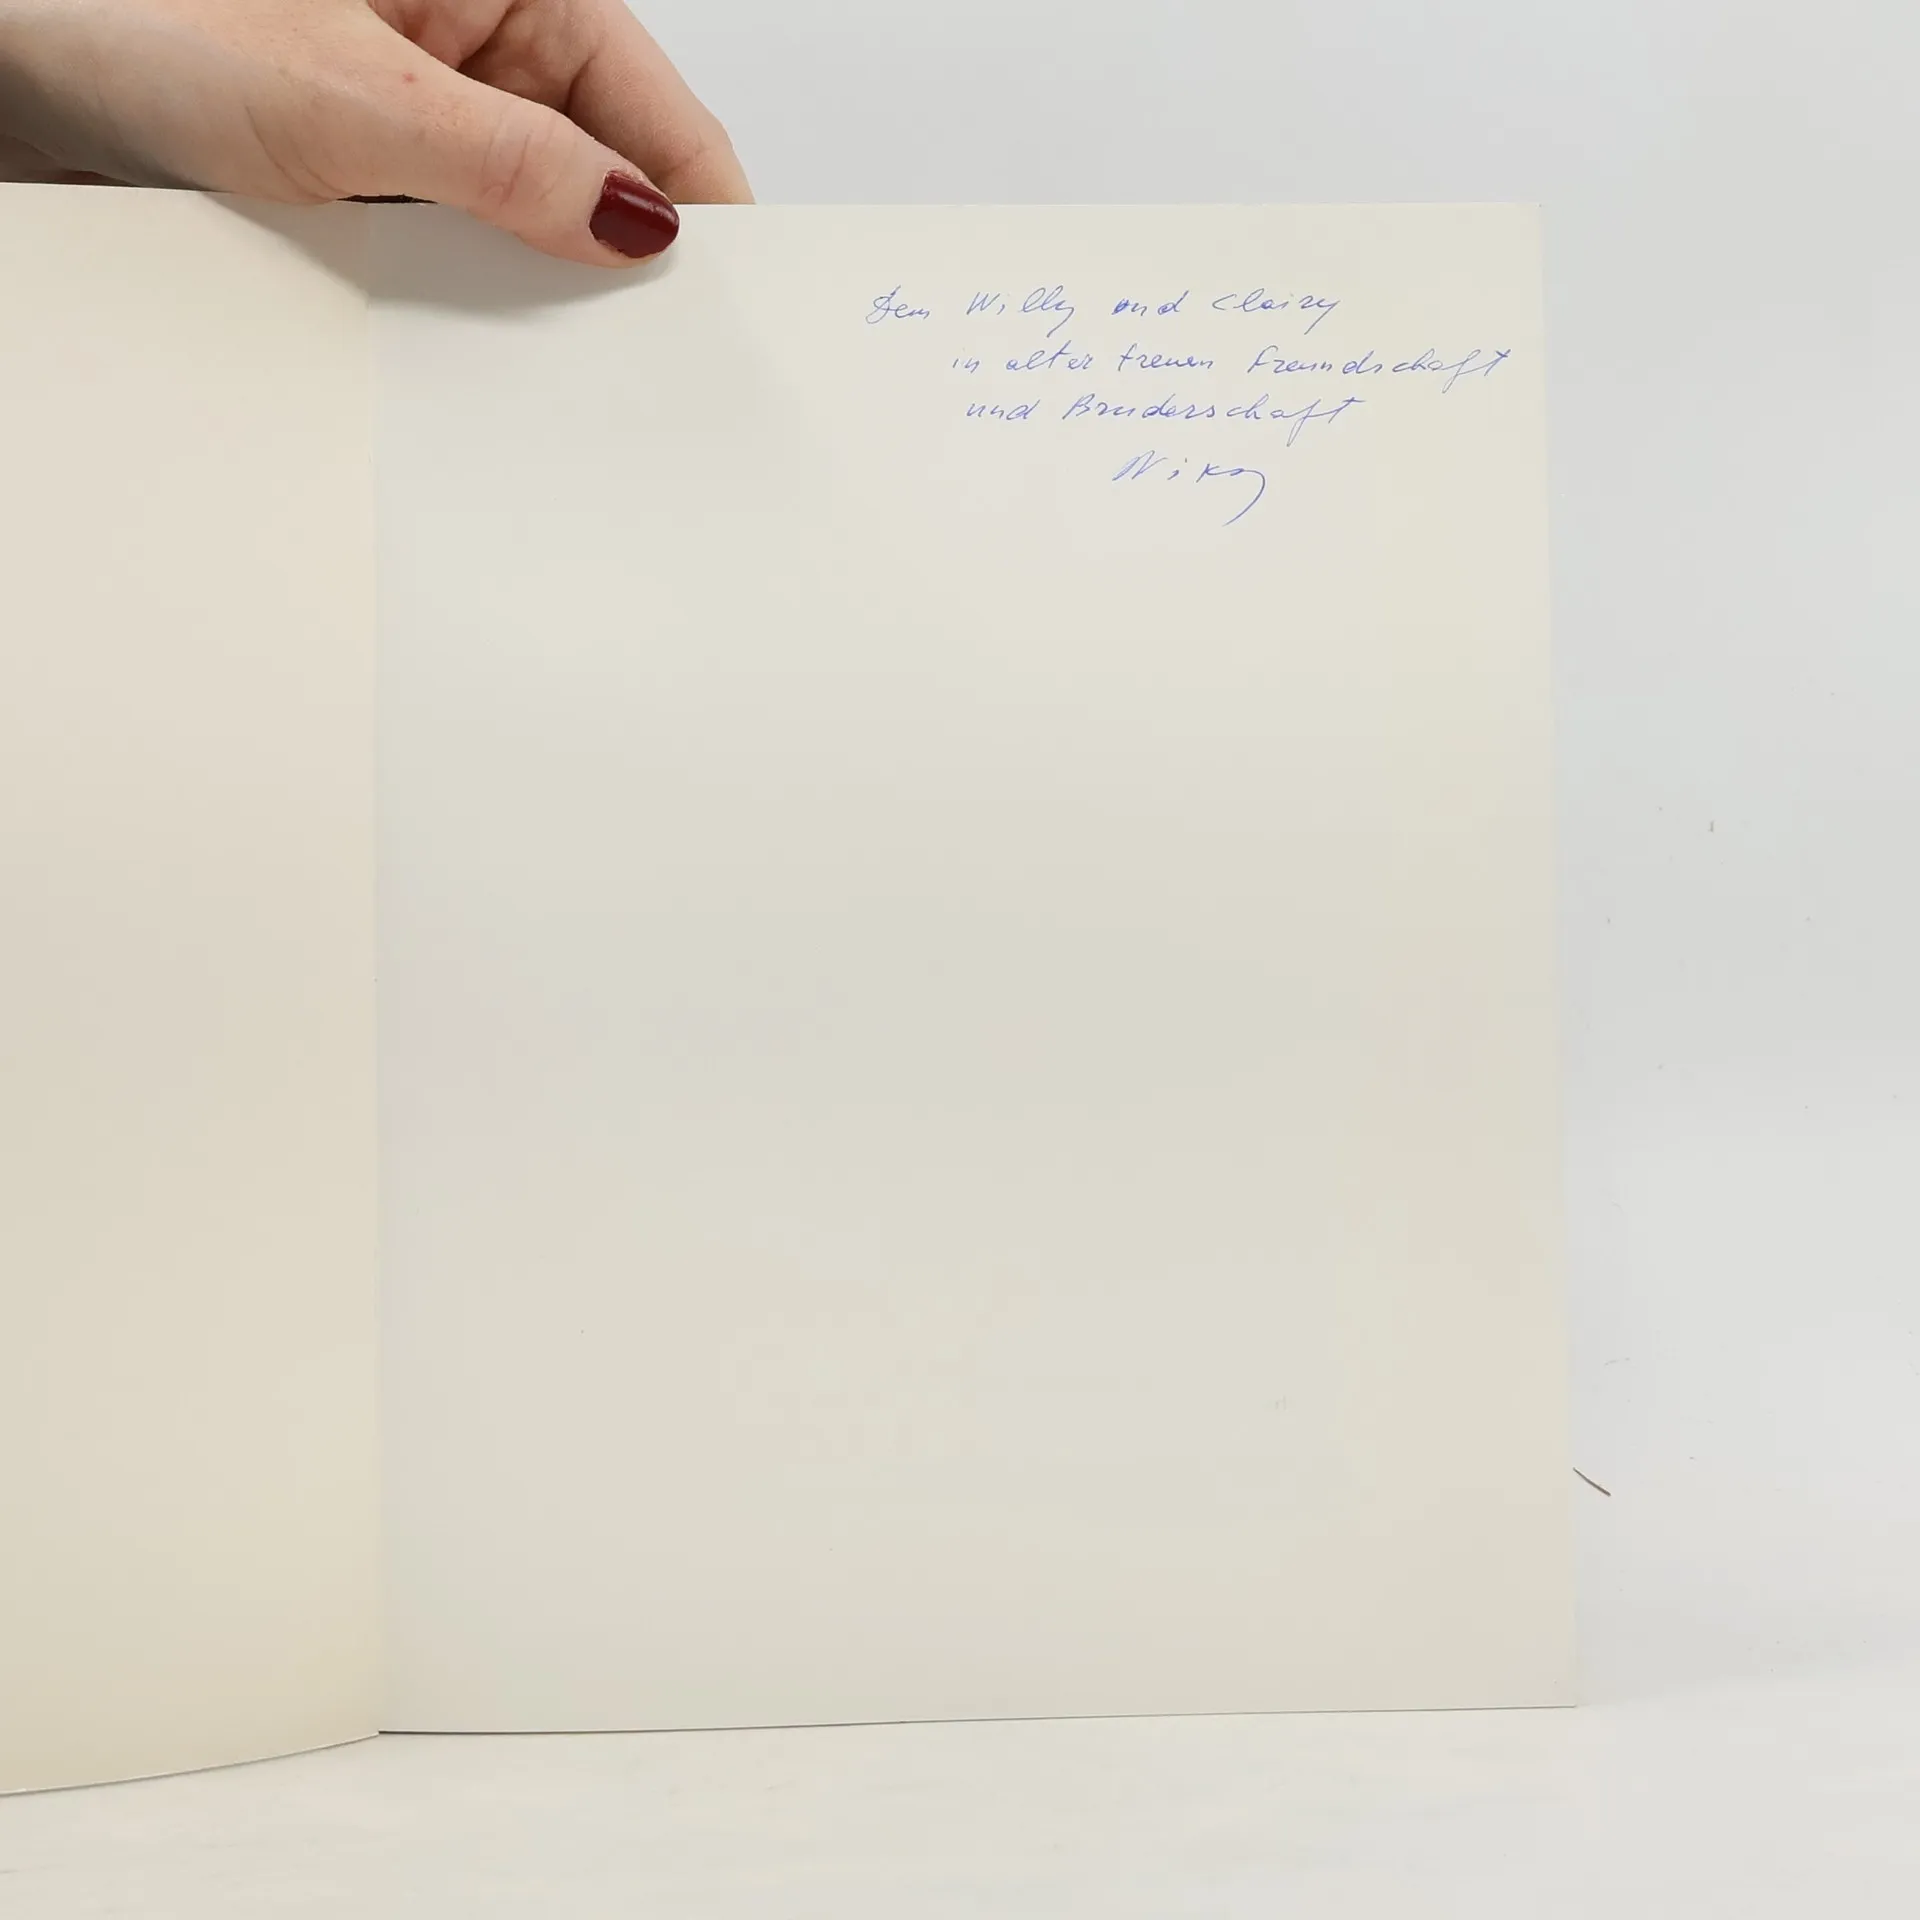 Dem Willy und Clairy
in alter treuen Freundschaft
und Bruderschaft
Niky